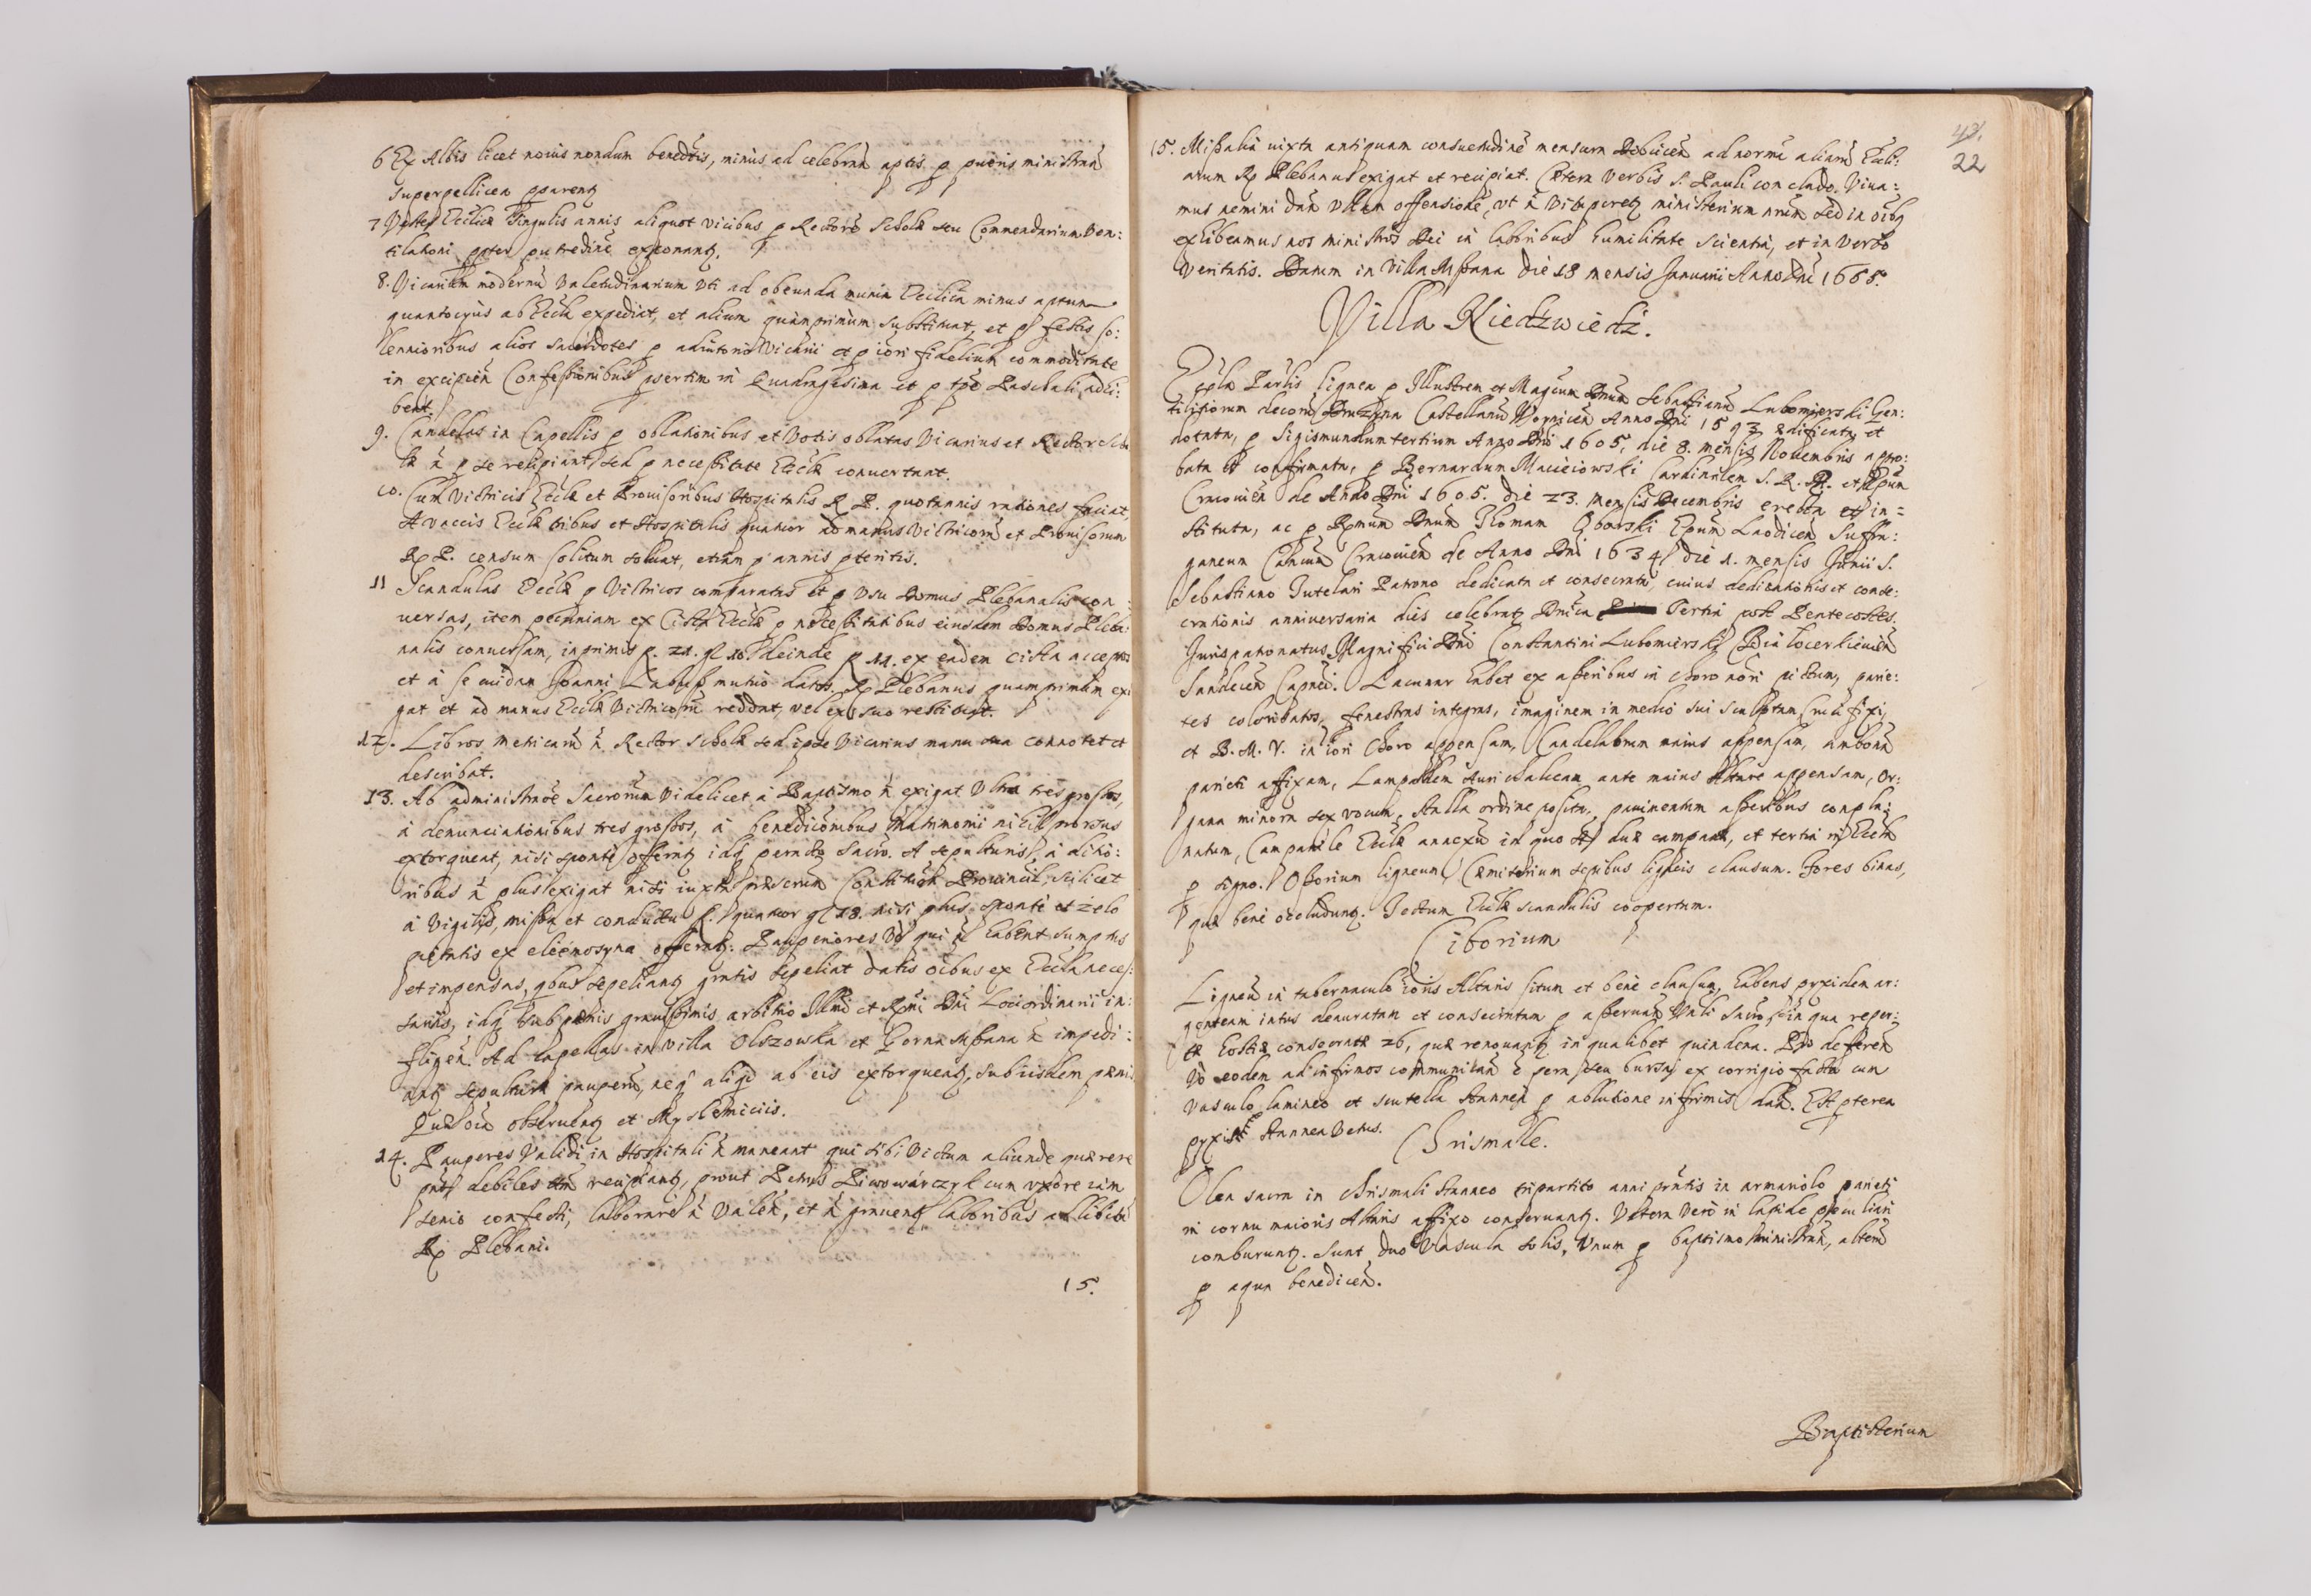 6 Ex Albis licet novis nondum benedčtis, minus ad celebrañ aptis p pueris ministrañ
superpellicea pparentʒ
7 Vestes Ecclicæ singulis annis aliquot vicibus p Rectorē Scholæ seu Commendarium ven:
tilationi ppter putredinē exponantʒ.
8. Vicarium modernū valetudinarium uti ad obeunda munia Ecclica minus aptum
quantocyus ab Eccla expediat, et alium quàmprimùm substituat, et p festis so:
lennioribus alios sacerdotes p adiutorio Vicarii et p iori fidelium commoditate
in excipien̄ Confessionibus psertim in Quadragesima et p tp̄e Paschali adhi:
beat.
9. Candelas in Capellis p oblationibus et votis oblatas Vicarius et Rector Scho
læ ñ p se recipiant, sed p necessitate Ecclæ convertant.
10. Cum Victricis Ecclæ et Provisoribus Hospitalis R P. quotannis rationes faciat,
A vaccis Ecclæ tribus et Hospitalis quatuor ad manus Victricorū et Provisorum
R P. censum solitum solvat, etiam p annis pteritis.
11 Scandulas Ecclæ p Victricos comparatas et p usu Domus Plebanalis con:
versas, item pecuniam ex Cista Ecclæ p necessitatibus eiusdem Domus Pleba:
nalis conversam, inprimis f. 21. gl 10 deinde f 11. ex eadem cista acceptos
et à se cuidam Joanni mutuò datos R Plebanus quamprimùm exi
gat et ad manus Ecclæ Victricorū reddat, vel ex suo restituat.
12. Libros metricarū ñ Rector Scholæ sed ipse Vicarius manu sua connotet et
describat.
13. Ab administraōe Sacrorum videlicet à Baptismo ñ exigat ultra tres grossos,
à denunciationibus tres grossos, à benedicōnibus Matrimonii nihil prorsus
extorqueat, nisi sponte offerentʒ idqʒ peracto Sacro. A sepulturis à ditio:
ribus ñ plus exigat nisi iuxta præscrum Constitution Provincial, scilicet
à Vigiliis, missa et conductu f. quatuor gl 18. nisi plus sponte et zelo
pietatis ex eleemosyna offerentʒ. Pauperiores Vo qui ñ habent sumptus
et impensas, qbus sepeliantʒ gratis sepeliat datis oībus ex Eccla neces:
sariis, idqʒ sub pœnis gravissimis arbitrio Illmi et Rmi Dni Loci ordinarii in:
fligen̄. Ad Capellas in villa Olszowka et Gorna Mszana ñ impedi:
antʒ sepulturæ pauperū, neqʒ aliqd ab eis extorqueatʒ, sub iisdem pœnis
Quæ oīa observentʒ et Myslimiciis.
14. Pauperes Validi in Hospitali ñ maneant qui sibi victum aliunde quærere
pnt, debiles tñ recipiantʒ, prout Petrus Piwowarczyk cum uxore iàm
senio confecti, laborare ñ valeñ, et ñ graventʒ laboribus ad libitū
R Plebani.
15.
42.
22
15. Missalia iuxta antiquam consuetudinē mensura Dobiicen̄ ad normā aliarū Eccli:
arum R Plebanus exigat et recipiat. Cætera verbis S. Pauli concludo. Viva:
mus nemini dañ ullam offensionē, ut ñ vituperetʒ ministerium nrum sed in oībʒ
exhibeamus nos ministros Dei in laboribus humilitate scientia, et in verbo
veritatis. Datum in Villa Mszana die 18 mensis Januarii Anno Dni 1665.
Villa Niedzwiedz.
Eccla Parlis lignea p Illustrem et Magcum Dnum Sebastianū Lubomierski Gen:
tilitiorum decorū Druzyna Castellanū Voynicen̄ Anno Dni 1593 ædificata et
dotata, p Sigismundum tertium Anno Dni 1605, die 8. mensis Novembris appro:
bata et confirmata, p Bernardum Macieiowski Cardinalem S. R. E. et Epum
Cracovien̄ de Anno Dni 1605. die 23. mensis Decembris erecta et in=
stituta, ac p Rmum Dnum Thomam Oborski Epum Laodicen̄ Suffra:
ganeum Canicum Cracovien̄ de Anno Dni 1634 die 1. mensis Junii S.
Sebastiano Tutelari Patrono dedicata et consecrata, cuius dedicationis et conse:
crationis anniversaria dies celebratʒ Dnica Tertia post Pentecostes.
Jurispatronatus Magnifici Dni Constantini Lubomierski
Sandecen̄ Lacunar habet ex asseribus in choro iiori pictum, parie:
tes coloribatos, fenestras integras, imaginem in medio sui sculptam Crucifixi,
et B. M. V. in iiori Choro appensam, Candelabrum maius appensum, ambonā
parieti affixam, Lampadem Aurichalceam ante maius Altare appensam, Or:
gana minora sex vocum, stalla ordine posita, pavimentum asseribus compla:
natum, Campanile Ecclæ annexū in quo st duæ campanæ, et tertia in Eccla
p signo. Ossorium ligneum, Cæmiterium sepibus ligneis clausum. Fores binas,
quæ bene occluduntʒ. Tectum Ecclæ scandulis coopertum.
Ciborium
Ligneū in tabernaculo ioris Altaris situm et bene clausum, habens pyxidem ar:
genteam intus deauratam et consecratam p asservan̄ Vnli Sacro, in qua reper:
tæ hostiæ consecratæ 26, quæ renovantʒ in qualibet quindena. Pro deferen̄
vo eodem ad infirmos communican̄ ē pera seu bursa ex corrigio facta cum
vasculo lamineo et scutella stannea p ablutione infirmis dan̄. Est pterea
pyxis stannea vetus.
Chrismale.
Olea sacra in chrismali stanneo tripartito anni prntis in armariolo parieti
in cornu maioris Altaris affixo conservantʒ. Vetera verò in lapide peculiari
comburuntʒ. Sunt duo vascula solis, unum p baptismo ministran̄, alterū
p aqua benedicen̄.
Baptisterium